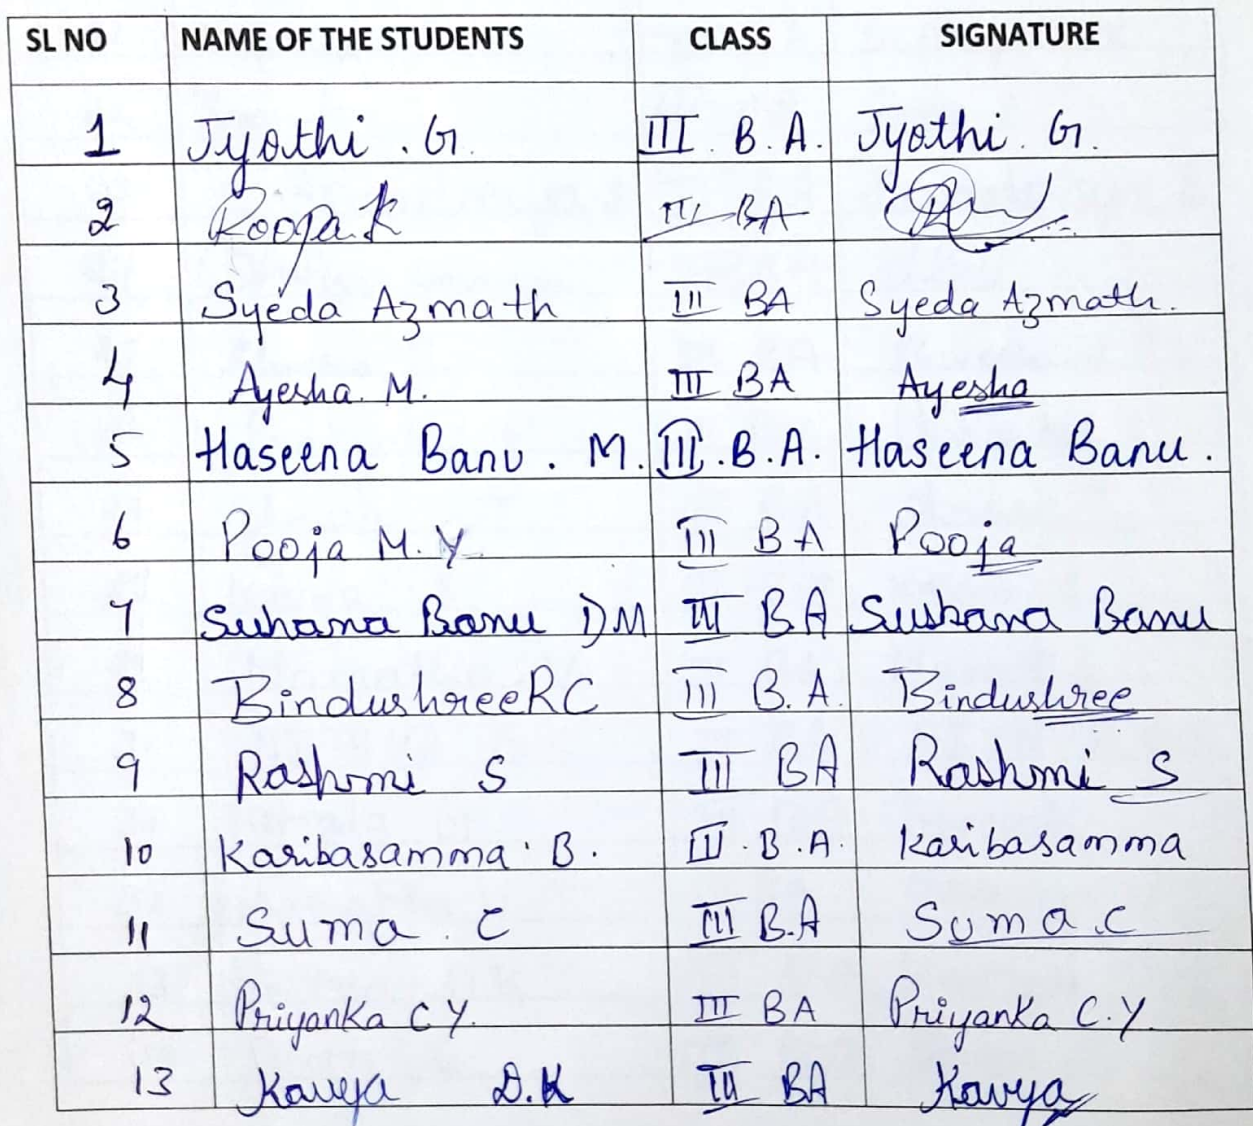 SL NO NAME OF THE STUDENTS CLASS SIGNATURE
1 Jyothi . G. III B.A. Jyothi. G.
2 Roopa.K III BA
3 Syeda Azmath III BA Syeda Azmath.
4 Ayesha. M. III BA Ayesha
5 Haseena Banu . M. III.B.A. Haseena Banu.
6 Pooja M.Y III BA Pooja
7 Suhana Banu DM III BA Suhana Banu
8 Bindushree RC III B.A. Bindushree
9 Rashmi S III BA Rashmi S
10 Karibasamma . B. III B.A. Karibasamma
11 Suma . C III B.A Suma.C
12 Priyanka C Y. III BA Priyanka C.Y.
13 Kavya D.K III BA Kavya